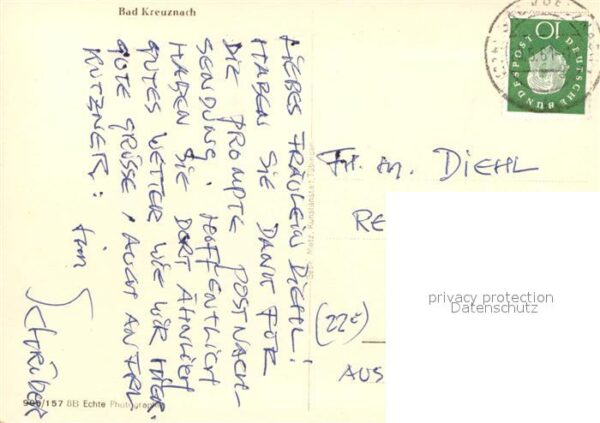 Bad Kreuznach
LIEBES FRÄULEIN DIEHL!
HABEN SIE DANK FÜR
DIE PROMPTE POSTNACH-
SENDUNG. HOFFENTLICH
HABEN SIE DORT ÄHNLICH
GUTES WETTER WIE WIR HIER.
GUTE GRÜSSE, AUCH AN FRL
KÜTZNER:
Schreiber
900/157 8B Echte Photographie
Gebr. Metz, Kunstanstalt, Tübingen
DEUTSCHE BUNDESPOST
10
DIEHL
RE
(22c)
AUS
privacy protection
Datenschutz